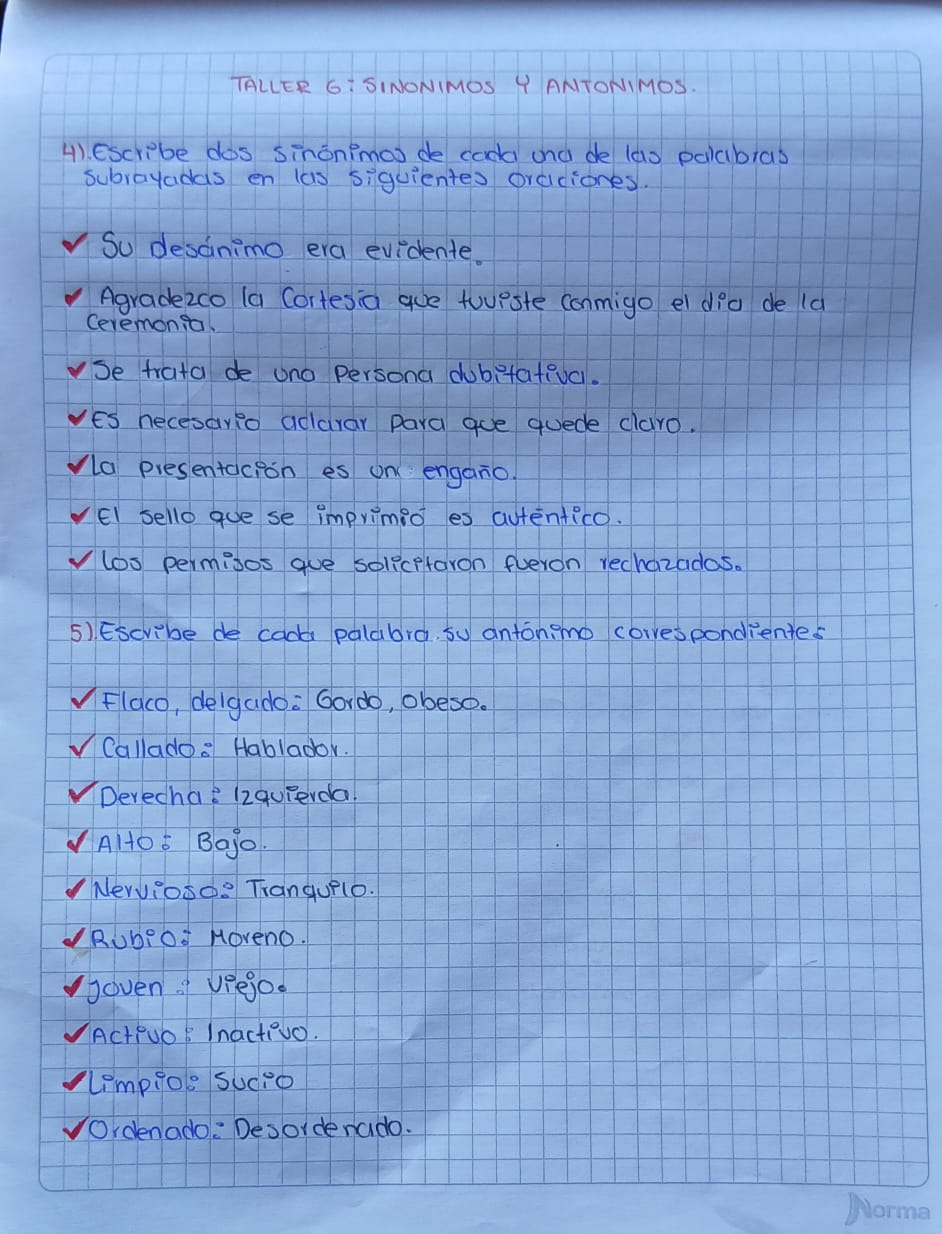 TALLER 6: SINONIMOS Y ANTONIMOS.
4). Escribe dos sinónimos de cada una de las palabras
subrayadas en las siguientes oraciones.
✓ Su desánimo era evidente.
✓ Agradezco la Cortesía que tuviste conmigo el día de la
Ceremonia.
✓ Se trata de una persona dubitativa.
✓ Es necesario aclarar para que quede claro.
✓ La presentación es un engaño.
✓ El sello que se imprimió es auténtico.
✓ Los permisos que solicitaron fueron rechazados.
5). Escribe de cada palabra su antónimo correspondiente:
✓ Flaco, delgado: Gordo, obeso.
✓ Callado: Hablador.
✓ Derecha: Izquierda.
✓ Alto: Bajo.
✓ Nervioso: Tranquilo.
✓ Rubio: Moreno.
✓ Joven: Viejo.
✓ Activo: Inactivo.
✓ Limpio: Sucio
✓ Ordenado: Desordenado.
Norma